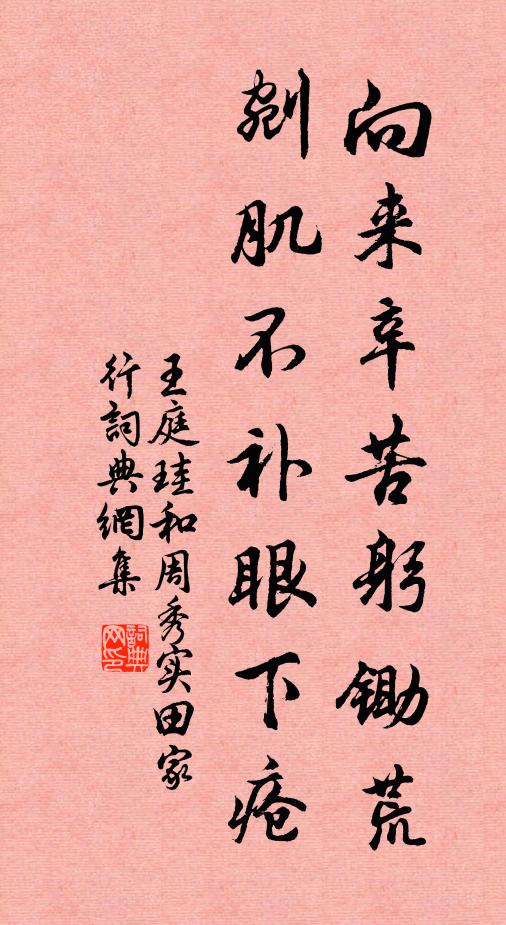 向来辛苦躬锄荒
剜肌不补眼下疮
王庭珪和周秀实田家
行詞典網集
詞典
网印